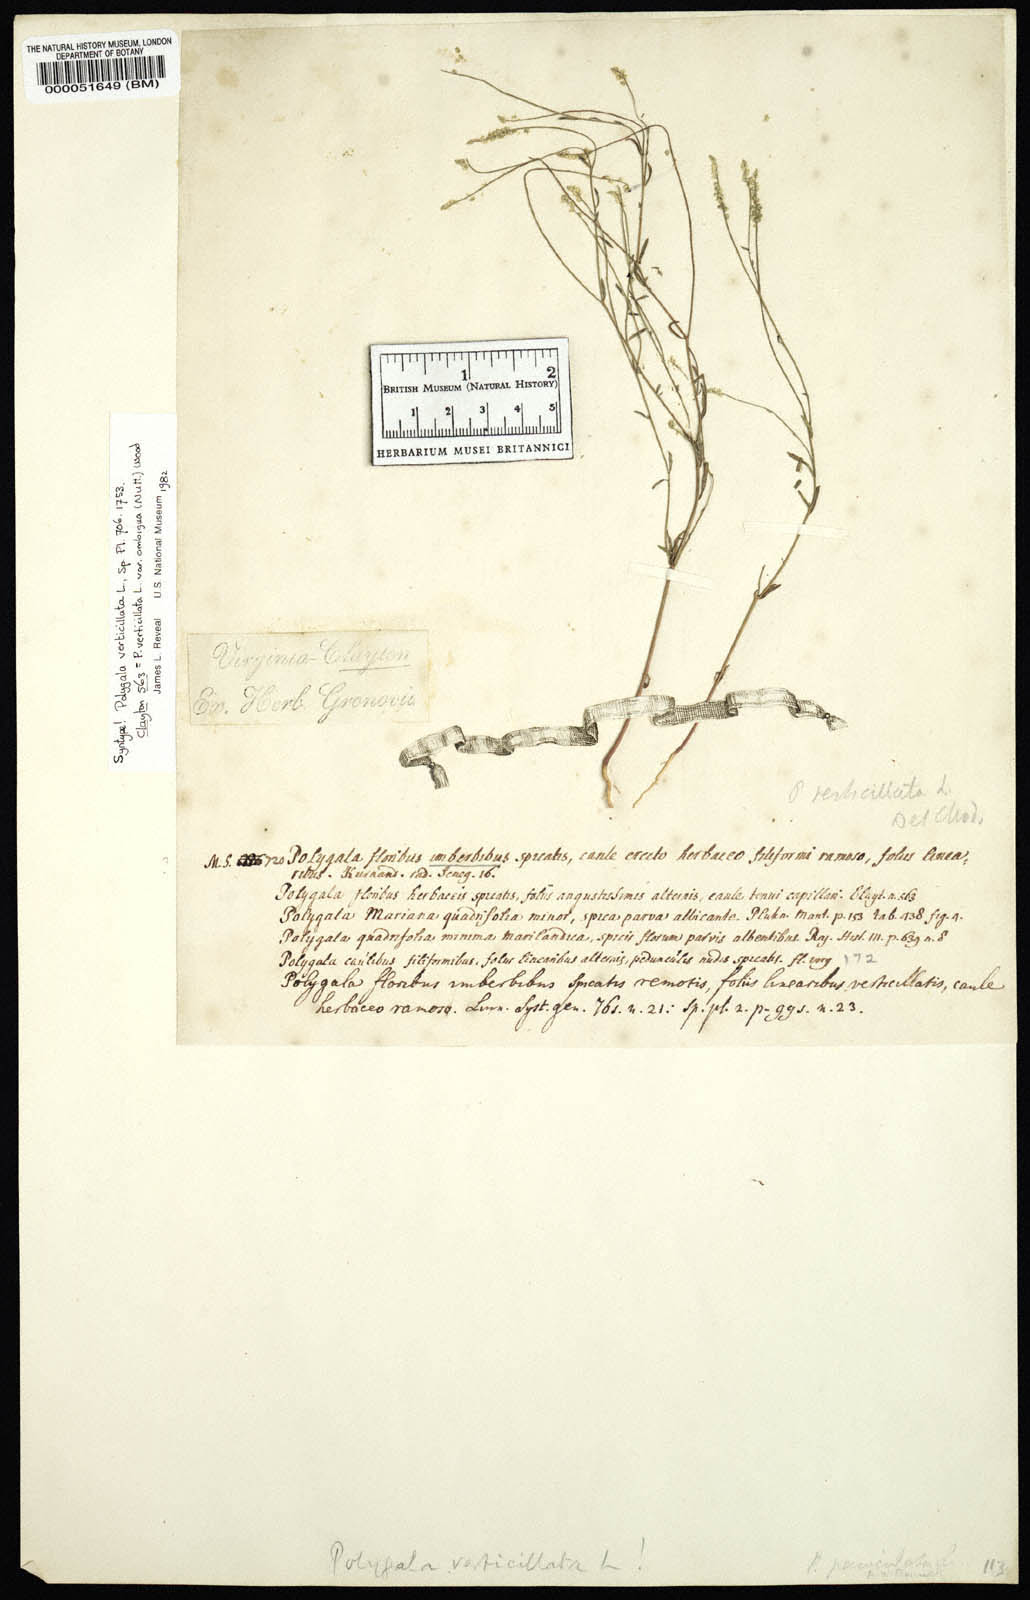 THE NATURAL HISTORY MUSEUM, LONDON
DEPARTMENT OF BOTANY
000051649 (BM)
1 2
BRITISH MUSEUM (NATURAL HISTORY)
1 2 3 4 5
HERBARIUM MUSEI BRITANNICI
Syntype! Polygala verticillata L., Sp. Pl. 706. 1753.
Clayton 563 = P. verticillata L. var. ambigua (Nutt.) Wood
James L. Reveal U.S. National Museum 1982
Virginia - Clayton
Ex. Herb. Gronovii
P verticillata L.
Det Chod.
M.S. 720 Polygala floribus imberbibus spicatis, caule erecto herbaceo filiformi ramoso, foliis linea,
ribus. Kiernand. rad. Seneg. 16.
Polygala floribus herbaceis spicatis, foliis angustissimis alternis, caule tenui capillari. Clayt. n. 563
Polygala Mariana quadrifolia minor, spica parva albicante. Plukn. Mant. p. 153 tab. 438 fig. 4.
Polygala quadrifolia minima marilandica, spicis florum parvis albentibus. Ray. Hist. III. p. 639 n. 8
Polygala caulibus filiformibus, foliis linearibus alternis, pedunculis nudis spicatis. fl. virg 172
Polygala floribus imberbibus spicatis remotis, foliis linearibus verticillatis, caule
herbaceo ramoso. Linn. Syst. gen. 761. n. 21: Sp. pl. 2. p. 995. n. 23.
Polygala verticillata L !
P. paniculata
113